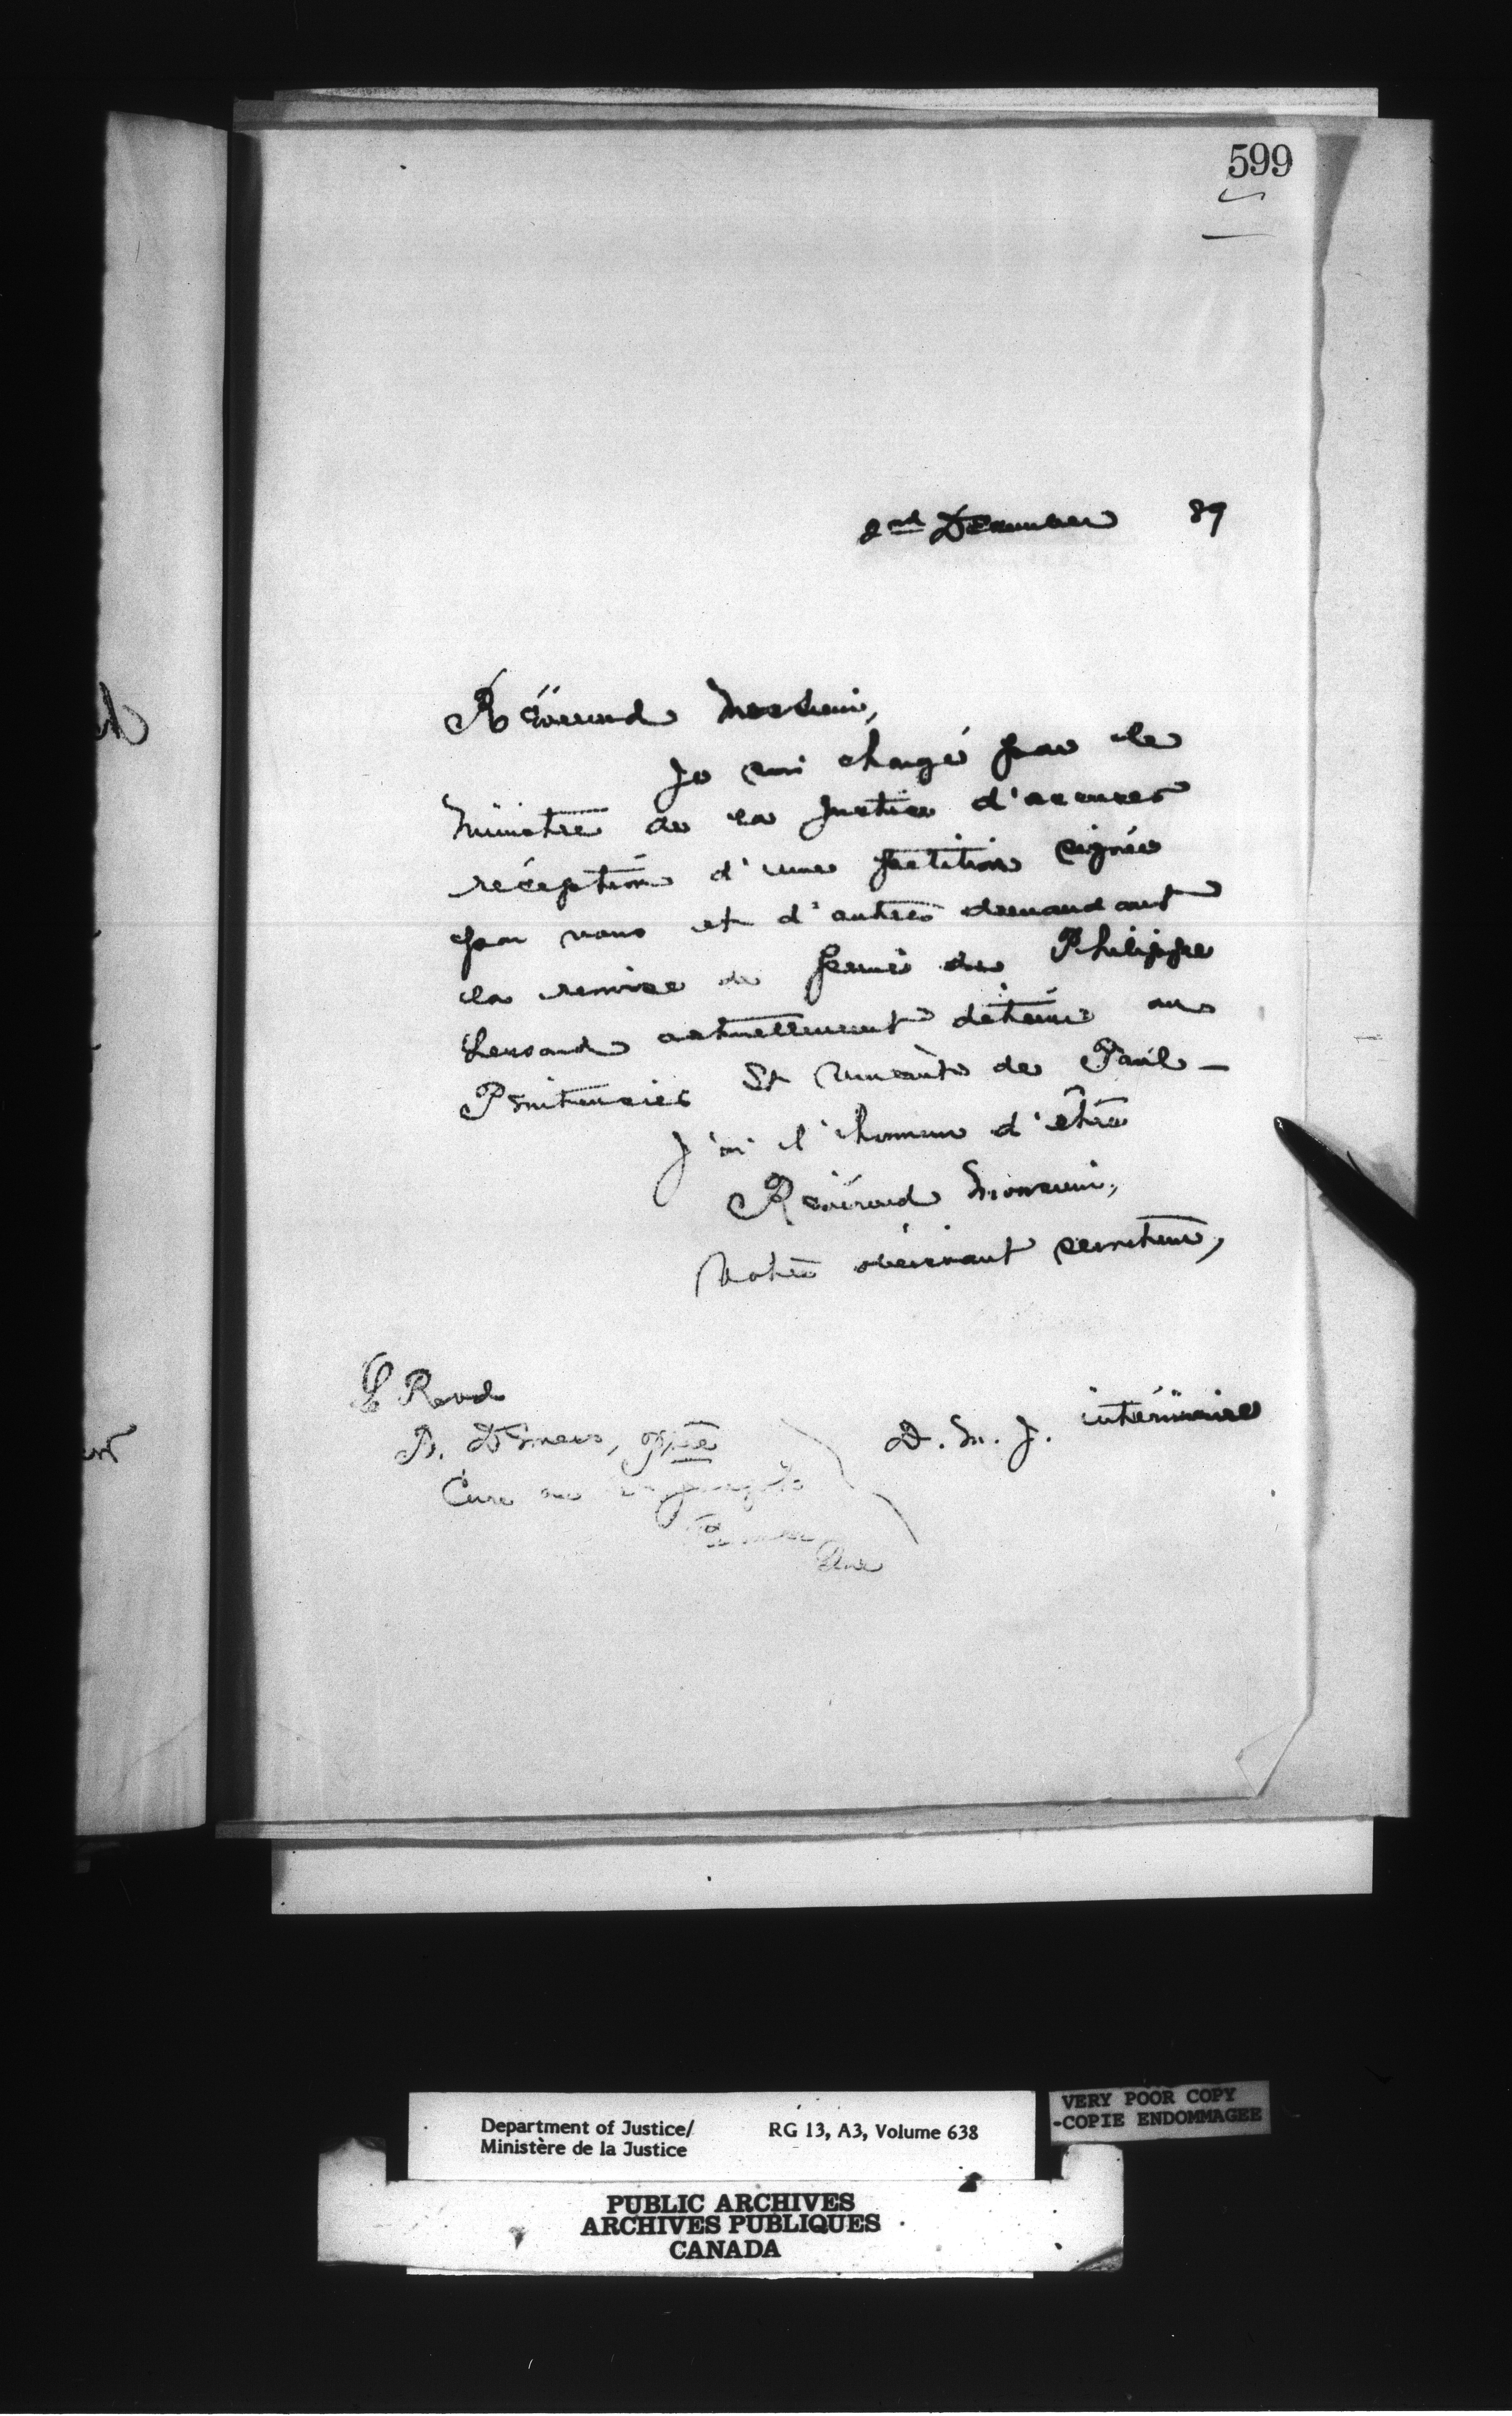 599
2nd December 89
Révérend Monsieur,
Je suis chargé par le
Ministre de la Justice d'accuser
réception d'une pétition signée
par vous et d'autres demandant
la remise de peine de Philippe
actuellement détenu au
Pénitencier St Vincent de Paul —
J'ai l'honneur d'être
Révérend Monsieur,
Votre obéissant serviteur,
D. M. J. intérimaire
Le Revd
Ptre
Curé
Que
Department of Justice/
Ministère de la Justice
RG 13, A3, Volume 638
VERY POOR COPY
-COPIE ENDOMMAGEE
PUBLIC ARCHIVES
ARCHIVES PUBLIQUES
CANADA